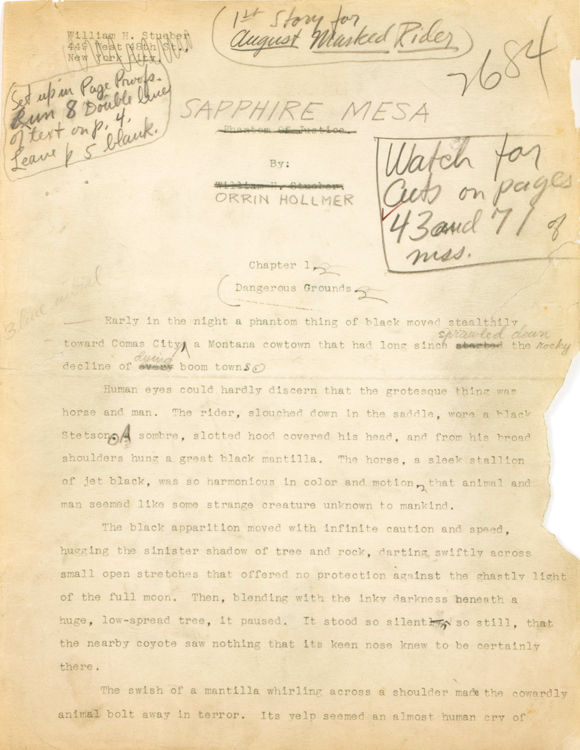 William H. Stueber
449 West 48th St.,
New York City.
1st Story for
August Masked Rider
2684
Set up in Page Proofs.
Run 8 Double lines
of text on p. 4.
Leave p 5 blank.
SAPPHIRE MESA
Phantom Of Justice.
By:
William H. Stueber
ORRIN HOLLMER
Watch for
Cuts on pages
43 and 71 of
mss.
Chapter 1.
Dangerous Grounds.
Early in the night a phantom thing of black moved stealthily
toward Comas City, a Montana cowtown that had long since started sprawled down the rocky
decline of every dying boom towns.
Human eyes could hardly discern that the grotesque thing was
horse and man. The rider, slouched down in the saddle, wore a black
Stetson. A sombre, slotted hood covered his head, and from his broad
shoulders hung a great black mantilla. The horse, a sleek stallion
of jet black, was so harmonious in color and motion, that animal and
man seemed like some strange creature unknown to mankind.
The black apparition moved with infinite caution and speed,
hugging the sinister shadow of tree and rock, darting swiftly across
small open stretches that offered no protection against the ghastly light
of the full moon. Then, blending with the inky darkness beneath a
huge, low-spread tree, it paused. It stood so silent, so still, that
the nearby coyote saw nothing that its keen nose knew to be certainly
there.
The swish of a mantilla whirling across a shoulder made the cowardly
animal bolt away in terror. Its yelp seemed an almost human cry of